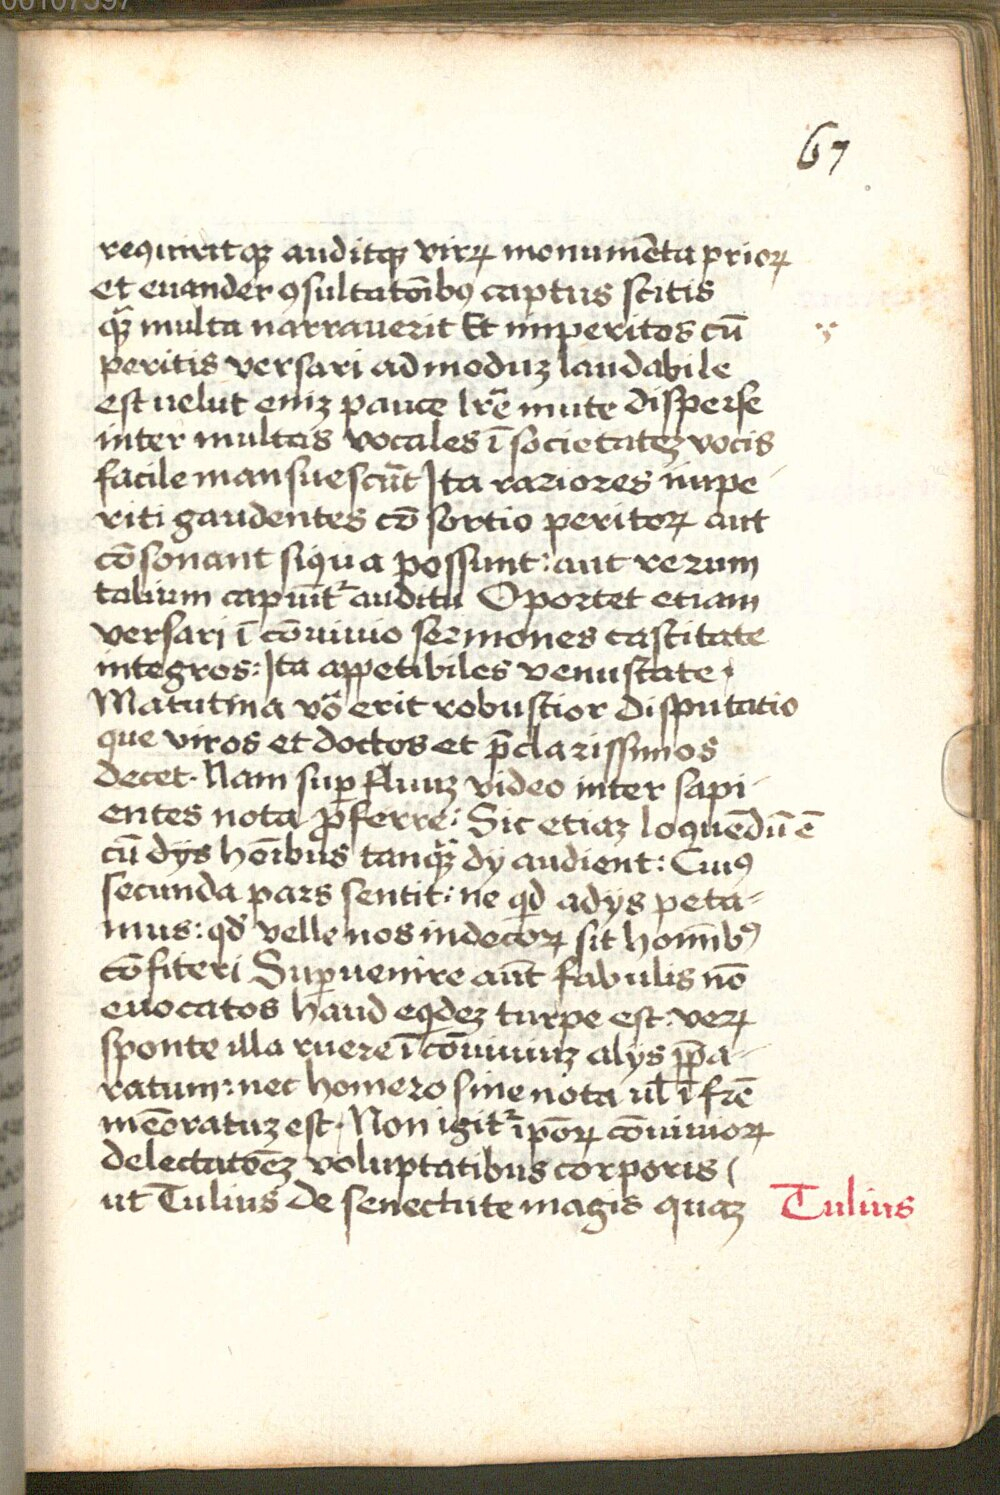 00107397
67
requiritqꝫ auditqꝫ virꝝ monumēta prioꝝ
et euander ꝯsultatōibꝰ captus scitis
qᷓꝫ multa narrauerit Et imperitos cū
peritis versari admoduꝫ laudabile
est uelut eniꝫ pauce lr̄e mute disperse
inter multas vocales ī societateꝫ vocis
facile mansuescūt Ita rariores impe
riti gaudentes cō sortio peritoꝝ aut
cōsonant siqua possunt: aut rerum
talium capiūtᷣ auditu Oportet etiam
versari ī cōuiuio sermones castitate
integros: Ita appetibiles venustate.
Matutina vō erit robustior disputatio
que viros et doctos et p̄clarissimos
decet. Nam suꝑfluuꝫ video inter sapi-
entes nota ꝓferre: Sic etiaꝫ loquēdū ē
cū dijs hoībus tanqᷓꝫ dij audient: Cuiꝰ
secunda pars sentit: ne qd̄ adijs peta-
mus: qd̄ velle nos indecoꝝ sit homībꝰ
cōfiteri Suꝑuenire aūt fabulis nō
euocatos haud eqdeꝫ turpe est: veꝝ
sponte illa ruere ī cōuiuiuꝫ alijs p̄pa-
ratum: nec homero sine nota ul̄ ī fr̄e
mēoratuꝫ est. Non igitᷣ ip̄oꝝ cōuiuioꝝ
delectatōeꝫ voluptatibus corporis (
ut Tulius de senectute magis quaꝫ
Tulius